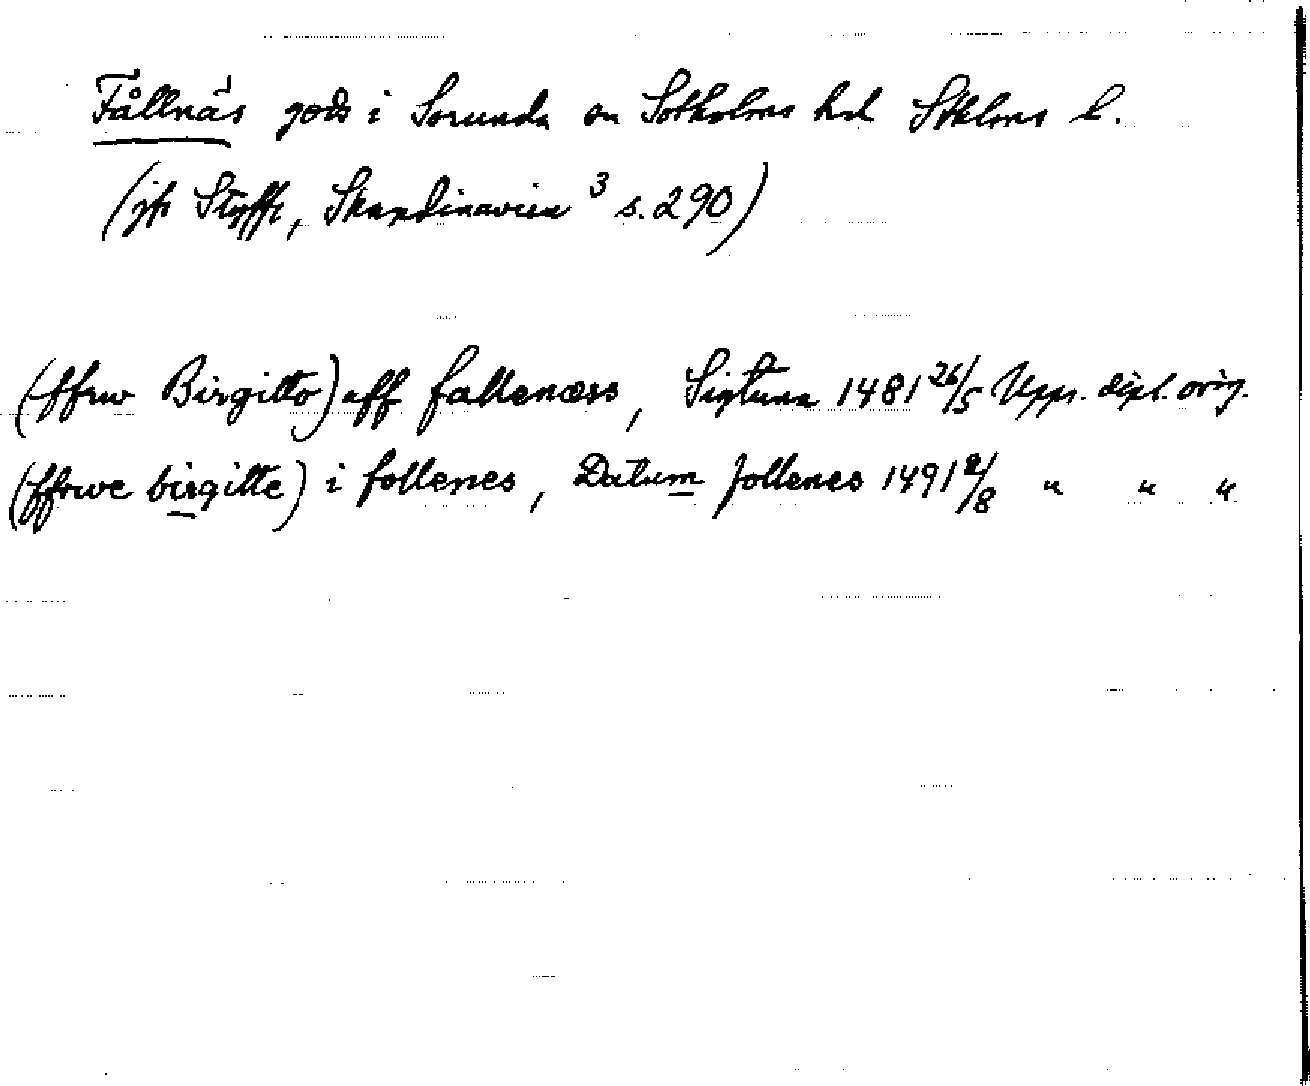 Fållnäs gods i Sorunda sn Sotholms hd Sthlms l.
(jfr Styffe, Skandinavien ³ s. 290)
(ffrw Birgitto) aff fallenæss, Sigtuna 1481 26/5 Upps. dipl. orig.
(ffrwe birgitte) i follenes, Datum follenes 1491 2/8 " " "